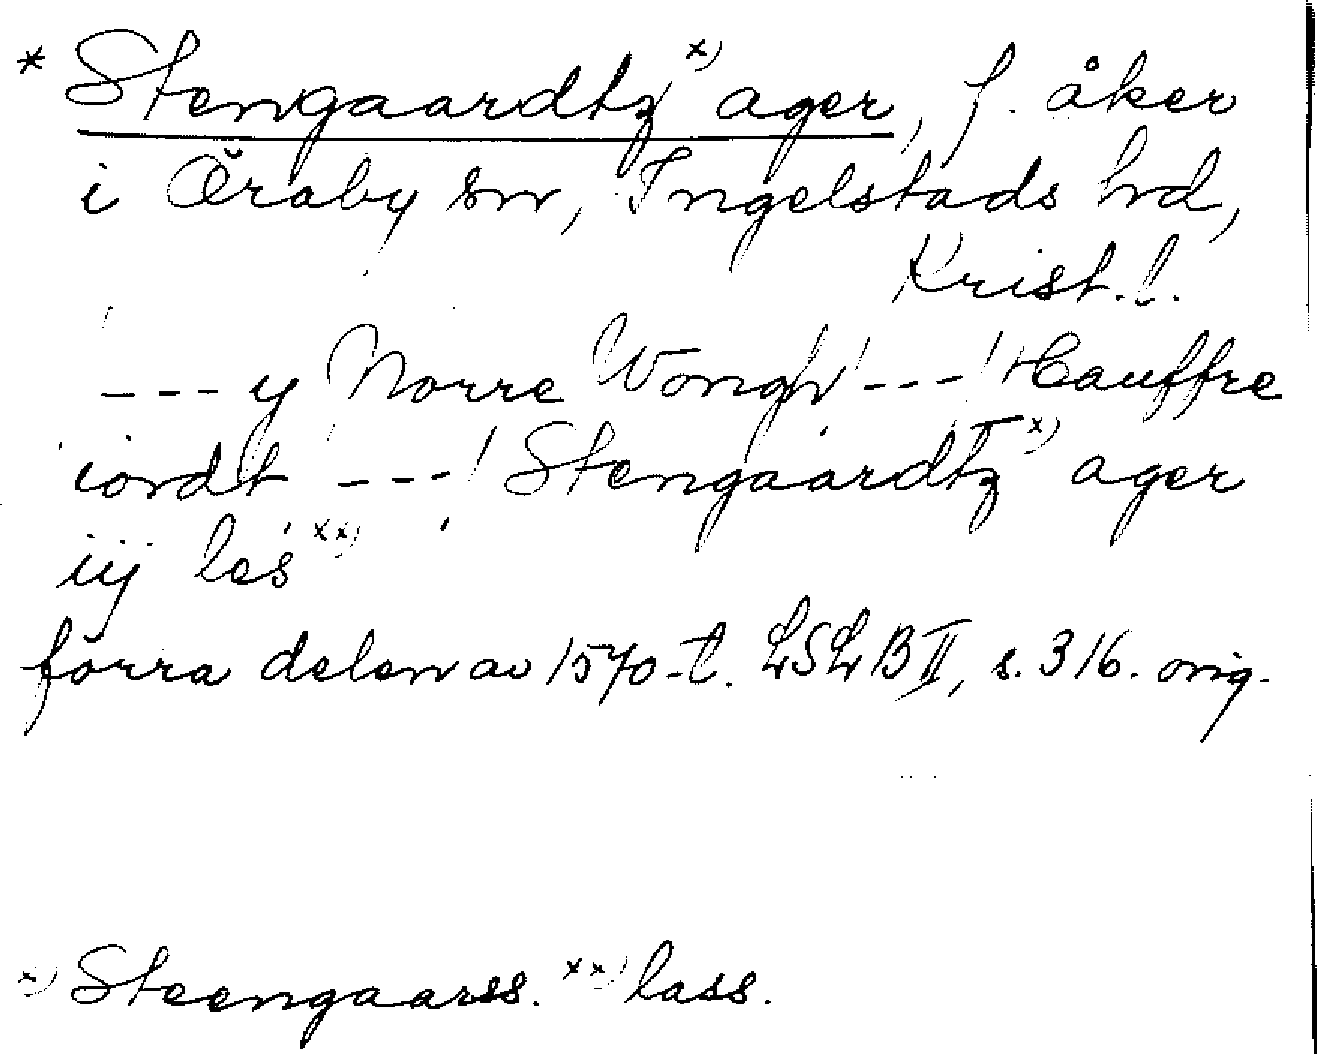 * Stengaardtz x) ager, f. åker
i Öraby sn, Ingelstads hd,
Krist. l.
--- y Norre Wongh --- / Hauffre
iordt --- / Stengaardtz x) ager
iij les xx)
förra delen av 1570-t. LSLB II, s. 316. orig.
x) Steengaarss. xx) lass.